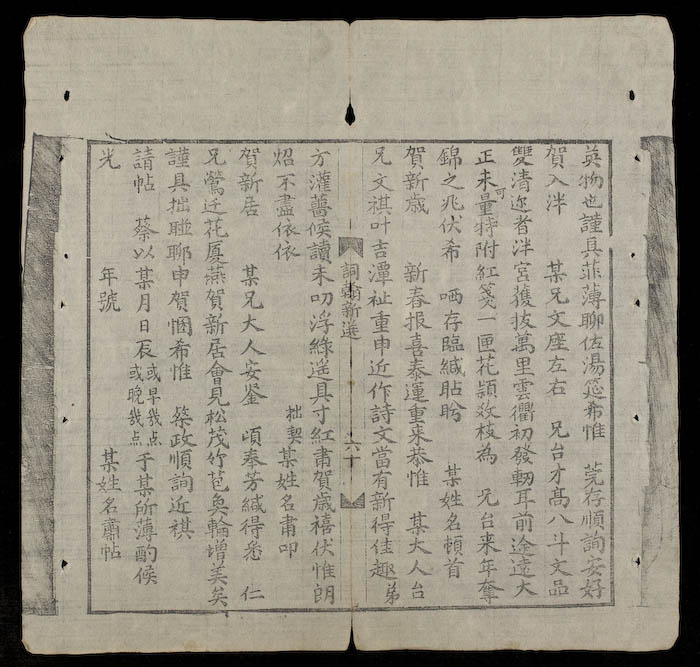 英物也謹具菲薄聊佐湯筵希惟 莞存順詢安好
賀入泮 某兄文座左右 兄台才高八斗文品
雙清迩者泮宮獲拔萬里雲衢初發軔耳前途遠大
正未可量特附紅箋一匣花頴效枝為 兄台来年奪
錦之兆伏希 哂存臨緘貼盼 某姓名頓首
賀新歲 新春报喜泰運重来恭惟 某大人台
兄文祺叶吉潭祉重申近作詩文當有新得佳趣弟
詞翰新選 六十
方灌薔候讀未叨浮綠遥具寸紅肅賀歲禧伏惟朗
炤不盡依依 拙契某姓名肅叩
賀新居 某兄大人安鉴 頃奉芳緘得悉 仁
兄鶯迁花厦燕賀新居會見松茂竹苞奐輪增美矣
謹具拙聯聊申賀悃希惟 荣政順詢近祺
請帖 蔡以某月日辰或早幾点或晚幾点于某所薄酌候
光 年號 某姓名肅帖